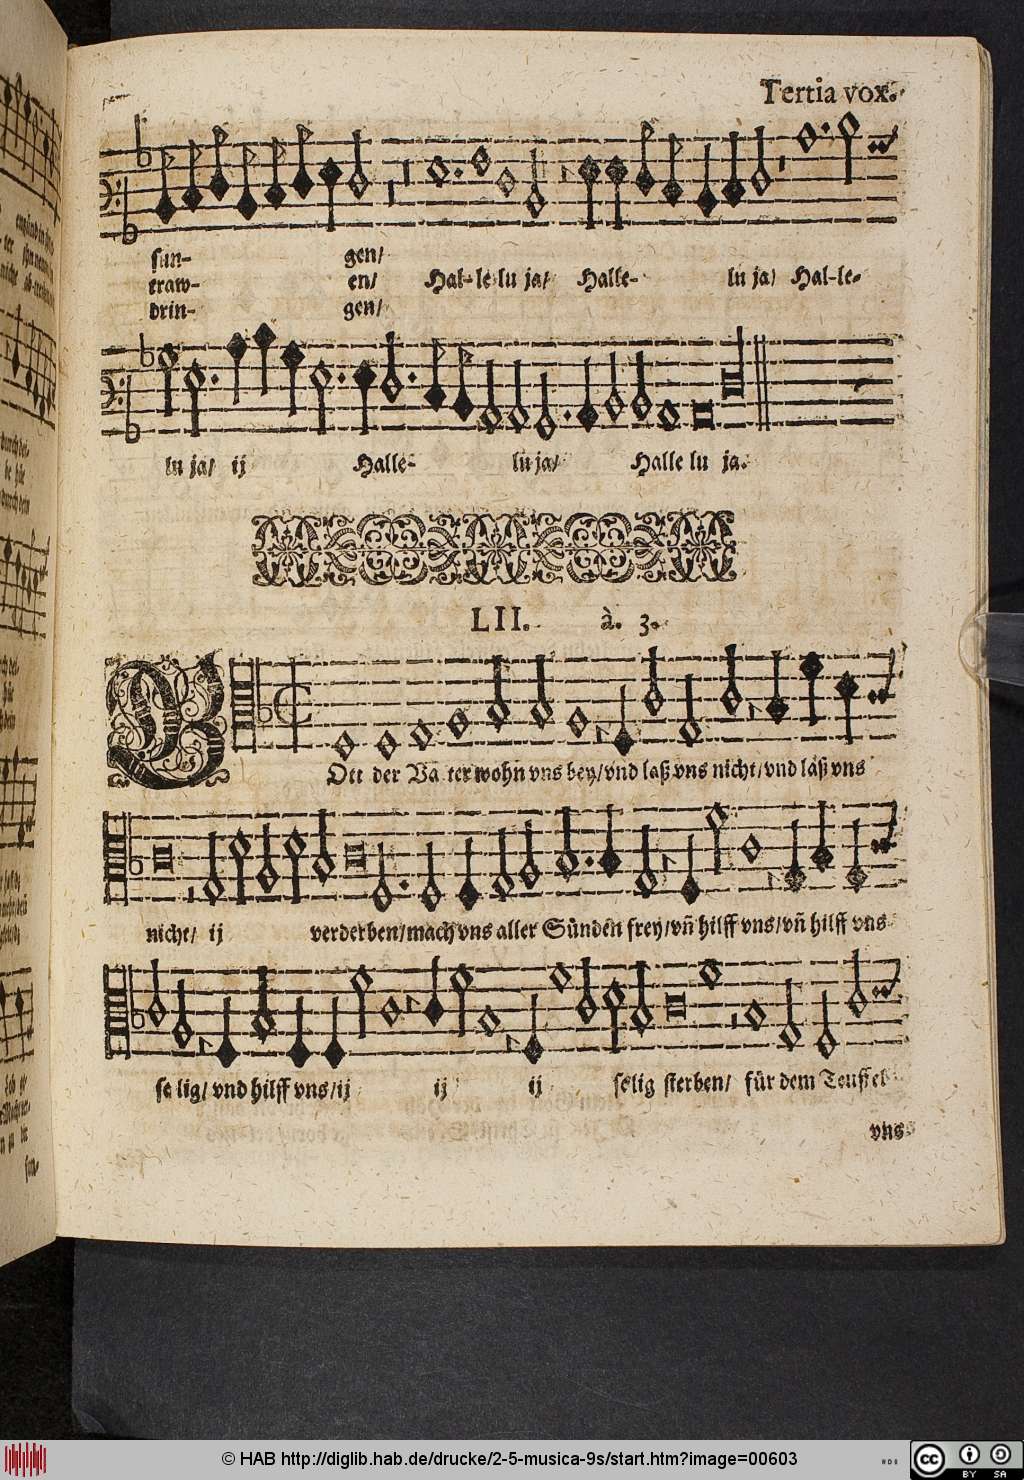 Tertia vox.
sun- gen/
traw- en/ Hal-le lu ja/ Halle- lu ja/ Hal-le-
drin- gen/
lu ja/ ij Halle- lu ja/ Halle lu ja.
LII. à. 3.
GOtt der Va ter wohn vns bey/vnd laß vns nicht/vnd laß vns
nicht/ ij verderben/mach vns aller Sünden frey/vñ hilff vns/vñ hilff vns
se lig/ vnd hilff vns/ij ij ij selig sterben/ für dem Teuffel
vns
© HAB http://diglib.hab.de/drucke/2-5-musica-9s/start.htm?image=00603
cc BY SA